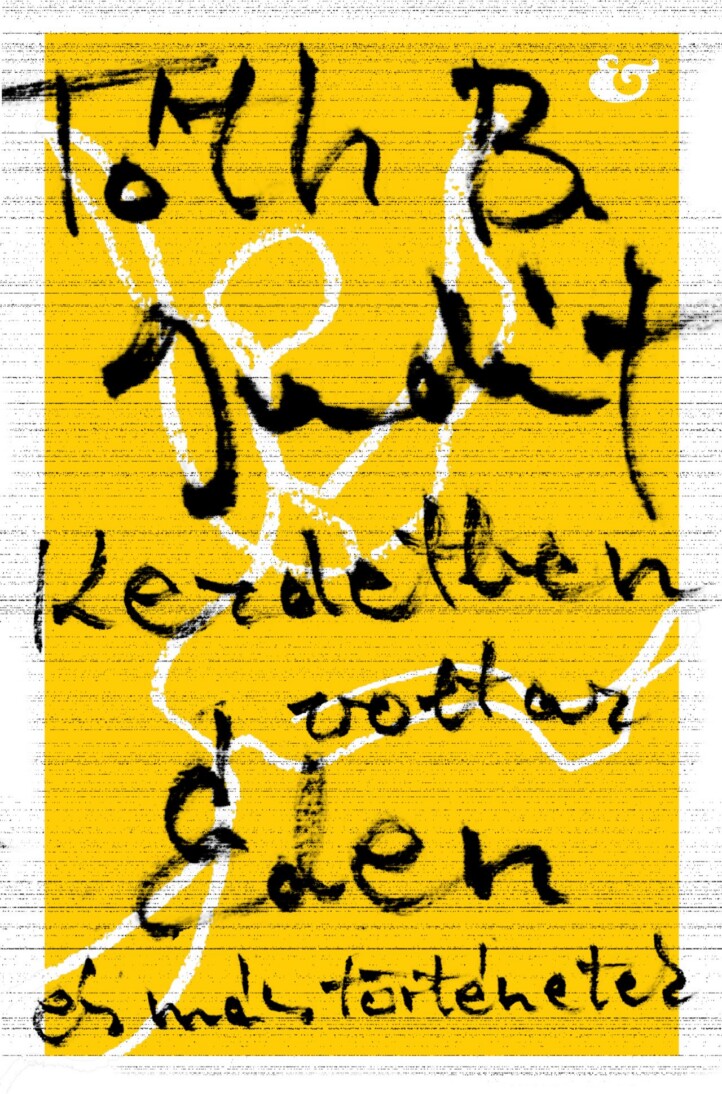 &
Tóth B
Judit
Kezdetben
voltaz
Éden
és más történetek